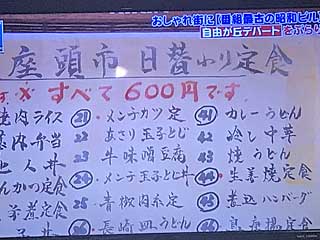 おしゃれ街に【番組最古の昭和ビル】
自由が丘デパートをぶらり
座頭市 日替わり定食
※ すべて600円です
焼肉ライス ㉑ メンチカツ定 ㊶ カレーうどん
弁当 22 あさり玉子とじ 42 冷し中華
人丼 23 牛味噌豆腐 43 焼うどん
かつ定食 24 メンチ玉子とじ丼 ㊹ 生姜焼定食
煮定食 25 青椒肉糸定 45 煮込ハンバーグ
定食 長崎皿うどん 46